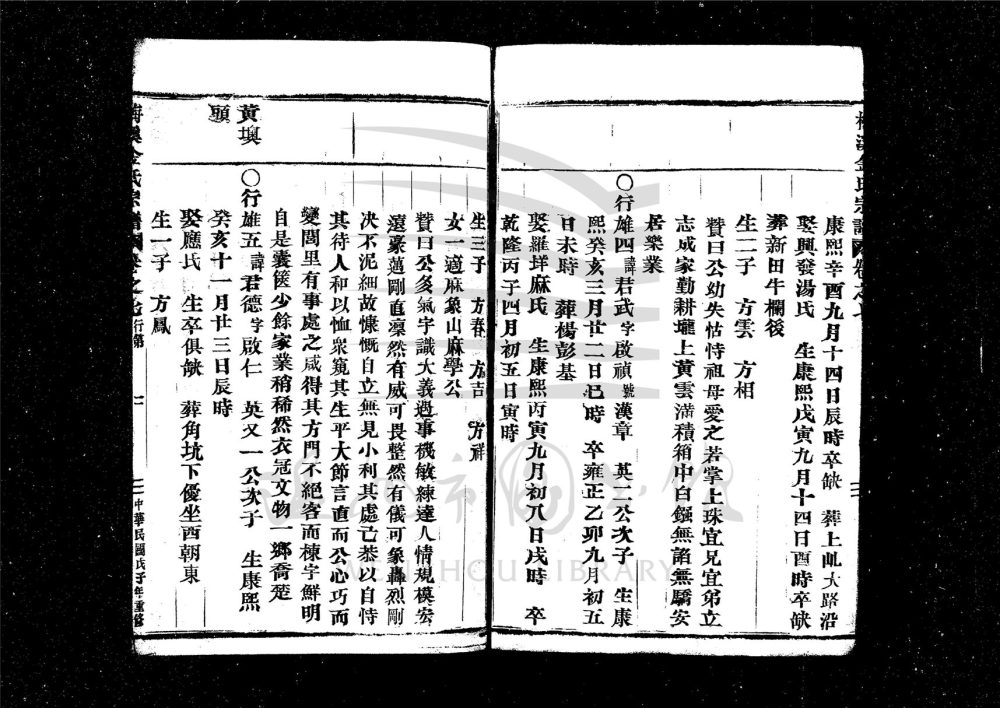 康熙辛酉九月十四日辰時卒缺　葬上虬大路沿
娶興發湯氏　生康熙戊寅九月十四日酉時卒缺
葬新田牛欄後
生二子　方雲　方相
贊曰公幼失怙恃祖母愛之若掌上珠宜兄宜弟立
志成家勤耕壠上黃雲滿積箱中白鏹無諂無驕安
居樂業
〇行雄四諱君武字啟禎號漢章　英二公次子　生康
熙癸亥三月廿二日巳時　卒雍正乙卯九月初五
日未時　葬楊彭基
娶羅垟麻氏　生康熙丙寅九月初八日戌時　卒
乾隆丙子四月初五日寅時
生三子　方春　方吉　方祥
女一適麻象山麻學公
贊曰公負氣字識大義遇事機敏練達人情規模宏
遠豪邁剛直凜然有威可畏整然有儀可象轟烈剛
決不泥細故慷慨自立無見小利其處己恭以自恃
其待人和以恤衆覓其生平大節言直而公心巧而
變閭里有事處之咸得其方門不絕客而棟宇鮮明
自是囊篋少餘家業稍稀然衣冠文物一鄉喬楚
黃墺
頭
〇行雄五諱君德字啟仁　英又一公次子　生康熙
癸亥十一月廿三日辰時
娶應氏　生卒俱缺　葬角坑下優坐西朝東
生一子　方鳳
金氏宗譜　卷之　行第　中華民國戊子年重修
溫州市圖書館
WENZHOU LIBRARY